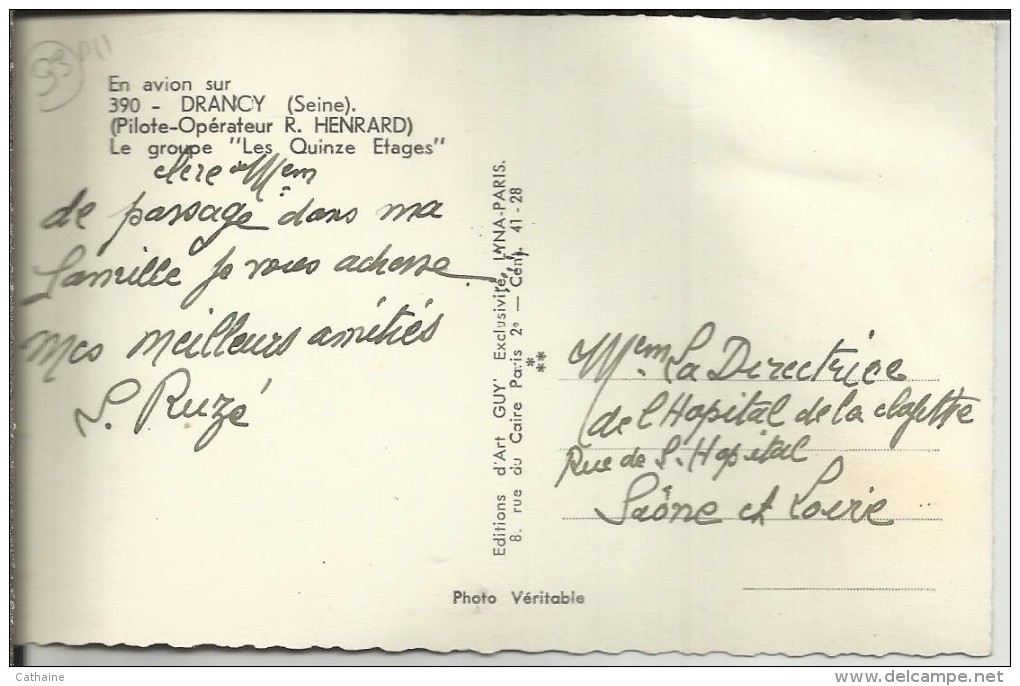 93
En avion sur
390 - DRANCY (Seine).
(Pilote-Opérateur R. HENRARD)
Le groupe "Les Quinze Etages"
chère Mem
de passage dans ma
famille je vous adresse
mes meilleurs amitiés
S. Ruzé
Editions d'Art GUY Exclusivité LYNA-PARIS.
8. rue du Caire Paris 2e — Cent. 41-28
**
Mem La Directrice
de l'Hopital de la
Rue de L. Hopital
Saône et Loire
Photo Véritable
Cathaine
www.delcampe.net